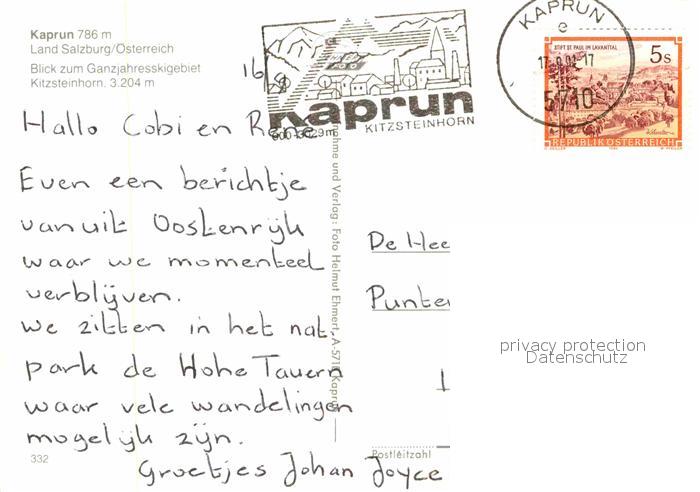 Kaprun 786 m
Land Salzburg/Österreich
Blick zum Ganzjahresskigebiet
Kitzsteinhorn. 3.204 m
Kaprun
KITZSTEINHORN
800-3029m
KAPRUN
e
5710
STIFT ST. PAUL IM LAVANTTAL
5s
REPUBLIK ÖSTERREICH
Hallo Cobi en René
Even een berichtje
vanuit Oostenrijk
waar we momenteel
verblijven.
we zitten in het nat.
park de Hohe Tauern
waar vele wandelingen
mogelijk zijn.
Groetjes Johan Joyce
332
Verlag: Foto Helmut Ehmert, A-5710 Kaprun
De Hee
Punte
Postleitzahl
privacy protection
Datenschutz